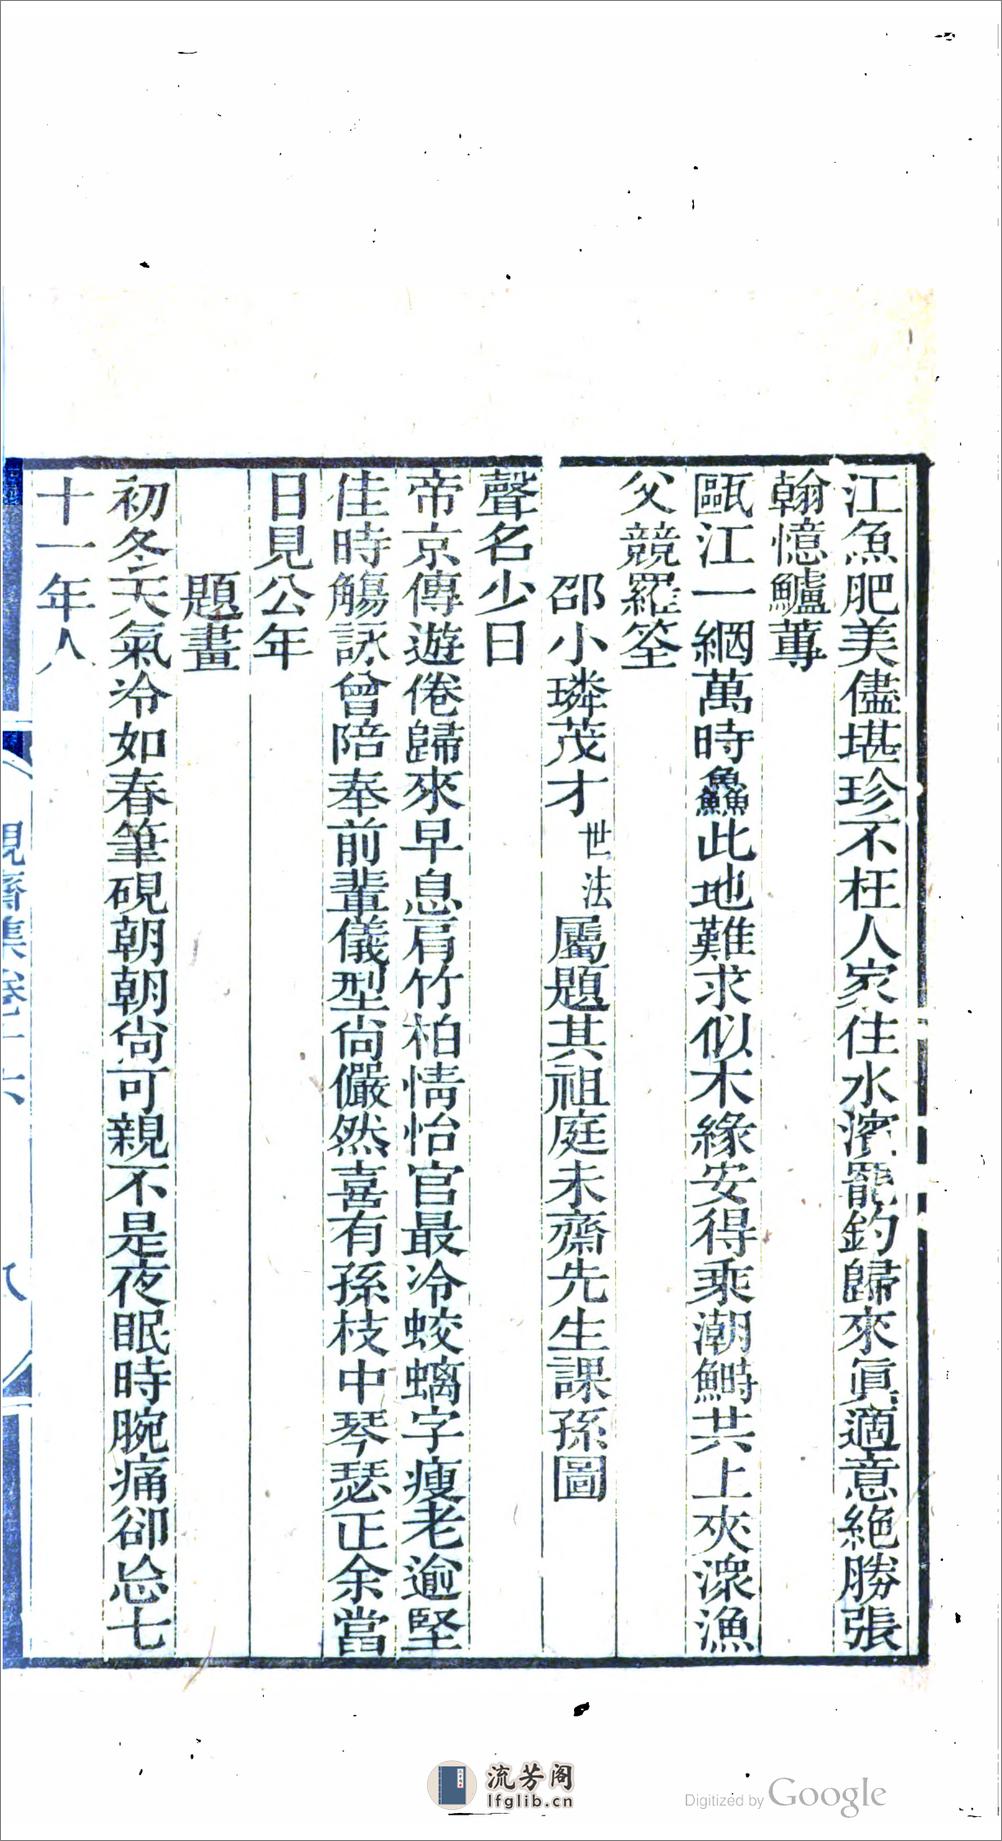 江魚肥美儘堪珍不枉人家住水濱罷釣歸來眞適意絕勝張
翰憶鱸蓴
甌江一網萬時鱻此地難求似木緣安得乘潮鰣共上夾深漁
父競羅筌
邵小璘茂才世法屬題其祖庭未齋先生課孫圖
聲名少日
帝京傳遊倦歸來早息肩竹柏情怡官最冷蛟螭字瘦老逾堅
佳時觴詠曾陪奉前輩儀型尙儼然喜有孫枝中琴瑟正余當
日見公年
題畫
初冬天氣冷如春筆硯朝朝尙可親不是夜眠時腕痛卻忩七
十一年人
齋集卷二十六
八
流芳阁
lfglib.cn
Digitized by Google